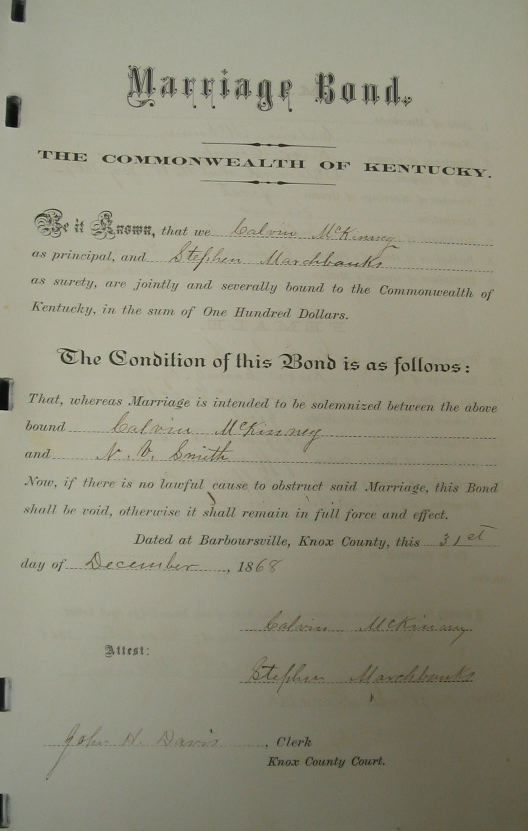 Marriage Bond.
THE COMMONWEALTH OF KENTUCKY.
Be it Known, that we Calvin McKinney
as principal, and Stephen Marchbanks
as surety, are jointly and severally bound to the Commonwealth of
Kentucky, in the sum of One Hundred Dollars.
The Condition of this Bond is as follows:
That, whereas Marriage is intended to be solemnized between the above
bound Calvin McKinney
and N. V. Smith
Now, if there is no lawful cause to obstruct said Marriage, this Bond
shall be void, otherwise it shall remain in full force and effect.
Dated at Barboursville, Knox County, this 31st
day of December, 1868
Calvin McKinney
Attest:
Stephen Marchbanks
John H. Davis, Clerk
Knox County Court.